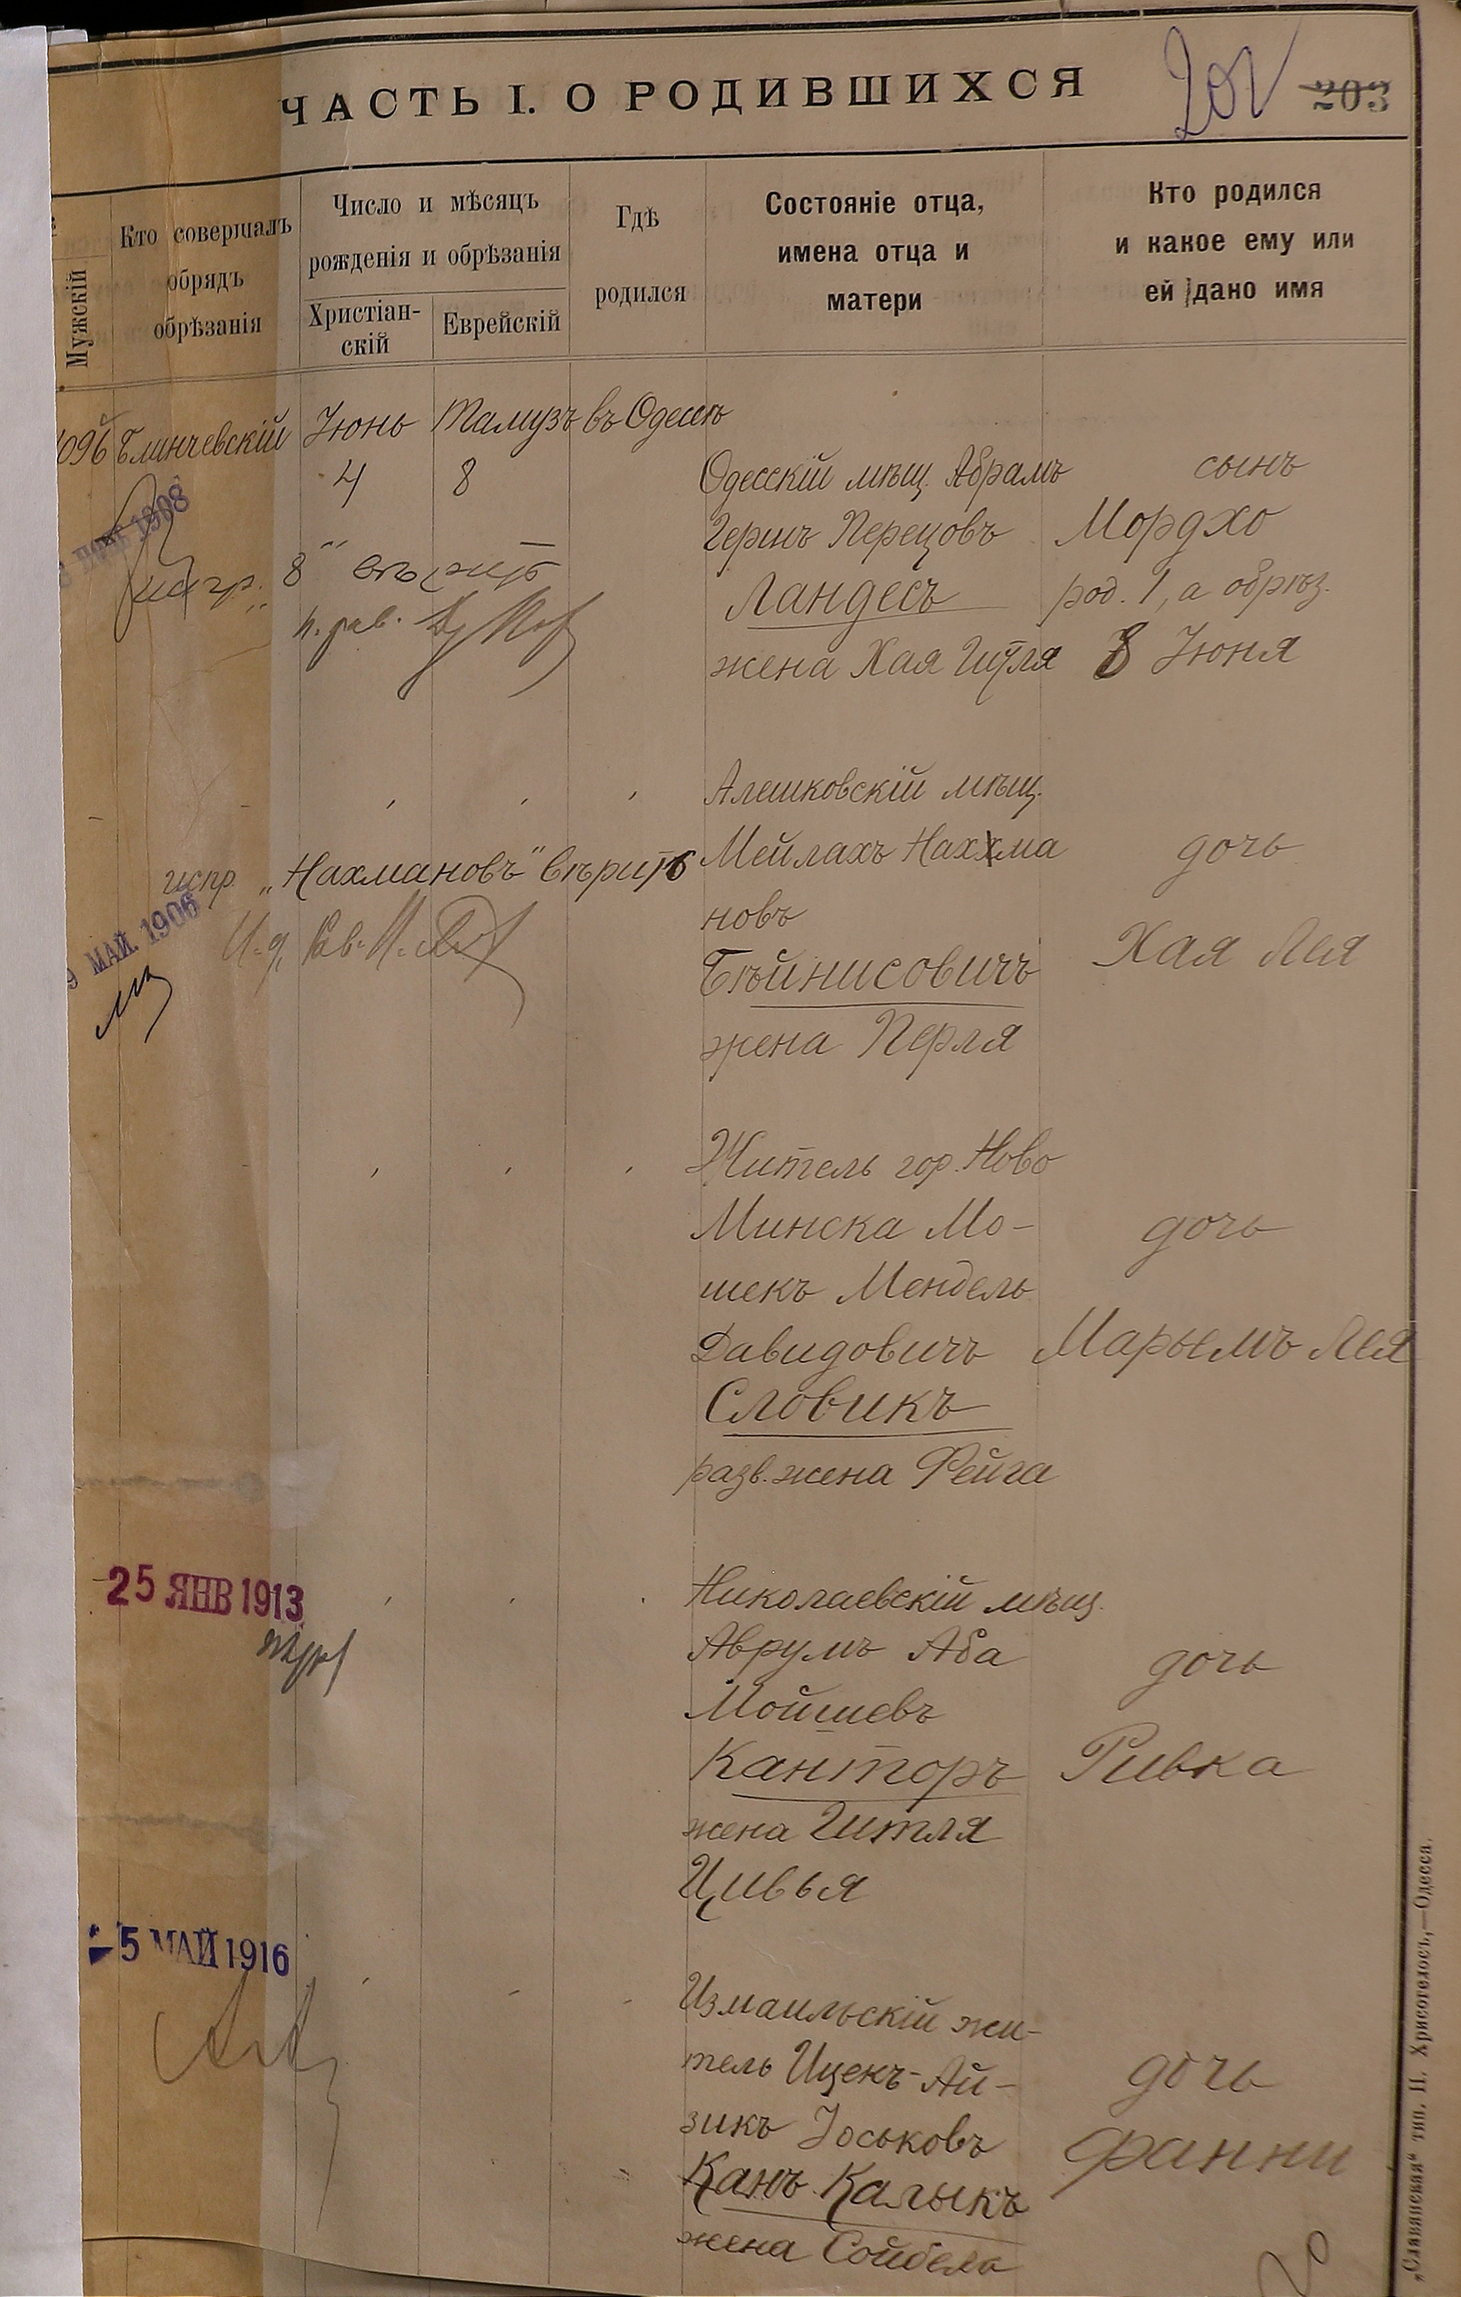 ЧАСТЬ I. О РОДИВШИХСЯ
203
Мужскій
Кто совершалъ
обрядъ
обрѣзанія
Число и мѣсяцъ
рожденія и обрѣзанія
Христіан-
скій
Еврейскій
Гдѣ
родился
Состояніе отца,
имена отца и
матери
Кто родился
и какое ему или
ей дано имя
Блинчевскій Іюнь Тамузъ въ Одессѣ
4 8
Одесскій мѣщ. Абрамъ
Гершъ Перецовъ
Ландесъ
жена Хая Гитля
сынъ
Мордхо
род. 1, а обрѣз.
8 Іюня
1908
испр. "8" вѣрить
и. рав.
Алешковскій мѣщ.
Мейлахъ Нахма
новъ
Бейнисовичъ
жена Перля
дочь
Хая Лея
испр. „Нахмановъ" вѣрить
И. д. Рав.
9 МАЙ. 1906
Житель гор. Ново
Минска Мо-
шекъ Мендель
Давидовичъ
Словикъ
разв. жена Фейга
дочь
Марьемъ Лея
25 ЯНВ 1913
Николаевскій мѣщ.
Аврумъ Аба
Мойшевъ
Канторъ
жена Гитля
Цивья
дочь
Ривка
-5 МАЙ 1916
Измаильскій жи-
тель Ицекъ-Ай-
зикъ Іоськовъ
Канъ-Калыкъ
жена Сойбела
дочь
Фанни
„Славянская" тип. Н. Хрисогелосъ,—Одесса.